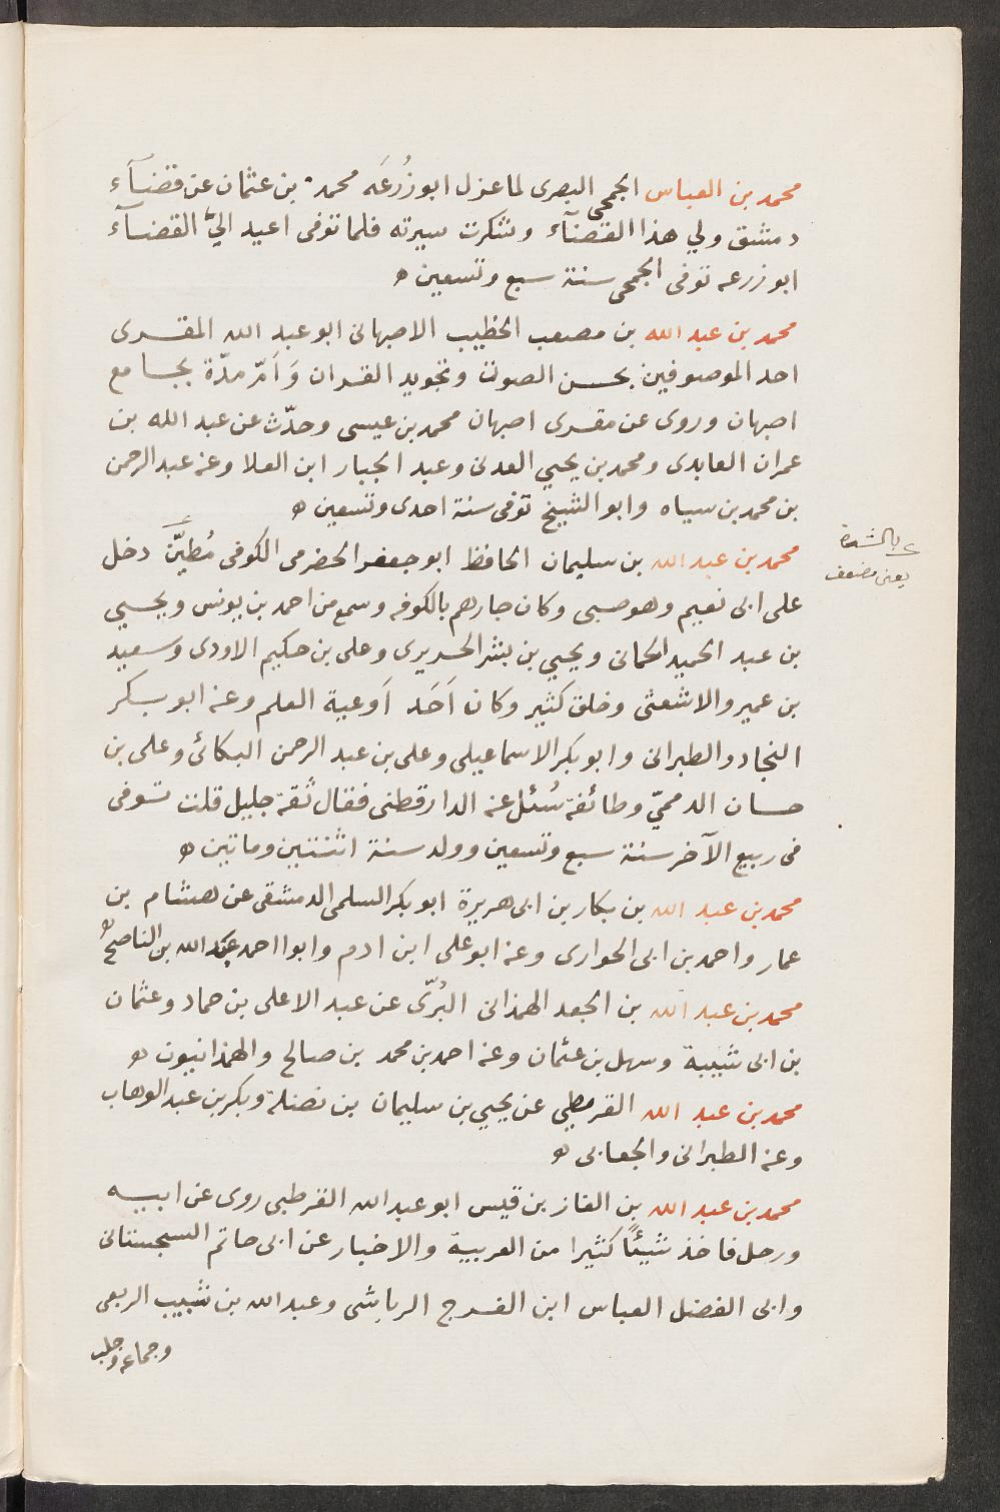 محمد بن العباس الجمحى البصرى لما عزل ابو زُرعَه محمد بن عثمان عن قضآء
دمشق ولي هذا القضآء وشكرت سيرته فلما توفى اعيد الي القضآء
ابو زرعه توفى الجمحى سنة سبع وتسعين ه
محمد بن عبد الله بن مصعب الخطيب الاصبهانى ابو عبد الله المقرى
احد الموصوفين بحسن الصوت وتجويد القران وَاَمّ مدّة بجامع
اصبهان وروى عن مقرى اصبهان محمد بن عيسى وحدّث عن عبد الله بن
عمران العابدى ومحمد بن يحيي العدنى وعبد الجبار ابن العلا وعنه عبد الرحمن
بن محمد بن سياه وابو الشيخ توفى سنة احدى وتسعين ه
بالشدة
يعنى مضعف
محمد بن عبد الله بن سليمان الحافظ ابو جعفر الحضرمى الكوفى مُطيَّن دخل
على ابى نعيم وهو صبى وكان جارهم بالكوفه وسمع من احمد بن يونس ويحيي
بن عبد الحميد الحمانى ويحيي بن بشر الحريرى وعلى بن حكيم الاودى وسعيد
بن عمير والاشعثى وخلق كثير وكان اَحَد اَوعية العلم وعنه ابو بكر
النجاد والطبرانى وابو بكر الاسماعيلى وعلى بن عبد الرحمن البكائى وعلى بن
حسان الدمميّ وطائفة سُئل عنه الدارقطنى فقال ثقة جليل قلت توفى
فى ربيع الآخر سنة سبع وتسعين وولد سنة اثنتين وماتين ه
محمد بن عبد الله بن بكار بن ابى هريرة ابو بكر السلمى الدمشقى عن هشام بن
عمار واحمد بن ابى الحوارى وعنه ابو على ابن ادم وابوا احمد عبد الله بن الناصح ه
محمد بن عبد الله بن الجعد الهمذانى البُرّى عن عبد الاعلى بن حماد وعثمان
بن ابى شيبة وسهل بن عثمان وعنه احمد بن محمد بن صالح والهمذانيون ه
محمد بن عبد الله القرمطي عن يحيي بن سليمان بن نضلة وبكر بن عبد الوهاب
وعنه الطبرانى والجعابى ه
محمد بن عبد الله بن الغاز بن قيس ابو عبد الله القرطبى روى عن ابيه
ورحل فاخذ شيئًا كثيرا من العربية والاخبار عن ابى حاتم السجستانى
وابى الفضل العباس ابن الفرج الرياشى وعبد الله بن شبيب الربعى
وجماعه وجلب